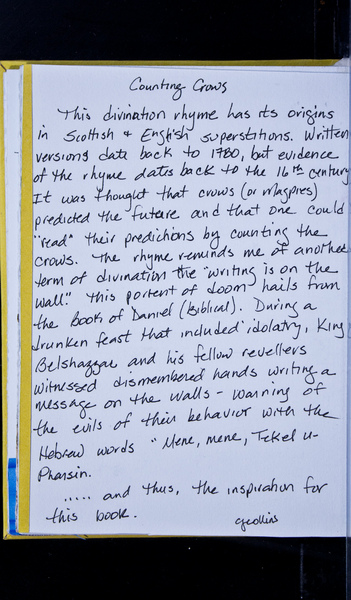 Counting Crows
This divination rhyme has its origins
in Scottish & English superstitions. Written
versions date back to 1780, but evidence
of the rhyme dates back to the 16th century
It was thought that crows (or magpies)
predicted the future and that one could
"read" their predictions by counting the
crows. The rhyme reminds me of another
term of divination the "writing is on the
wall." This portent of doom hails from
the book of Daniel (Biblical). During a
drunken feast that included idolatry, King
Belshazzar and his fellow revellers
witnessed dismembered hands writing a
message on the walls - warning of
the evils of their behavior with the
Hebrew words "Mene, mene, Tekel u-
Pharsin.
..... and thus, the inspiration for
this book.
gcollins